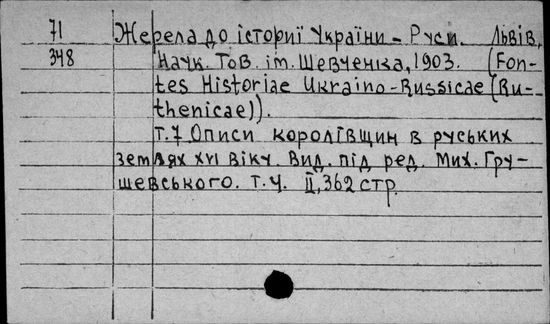 71 Жерела до історії України - Руси. Львів,
348 Наук. Тов. ім. Шевченка, 1903. (Fon-
tes Historiae Ukraino-Russicae (Ru-
thenicae)).
т.7 Описи королівщин в руських
землях XVI віку. Вид. під ред. Мих. Гру-
шевського. т.4. II, 362 стр.